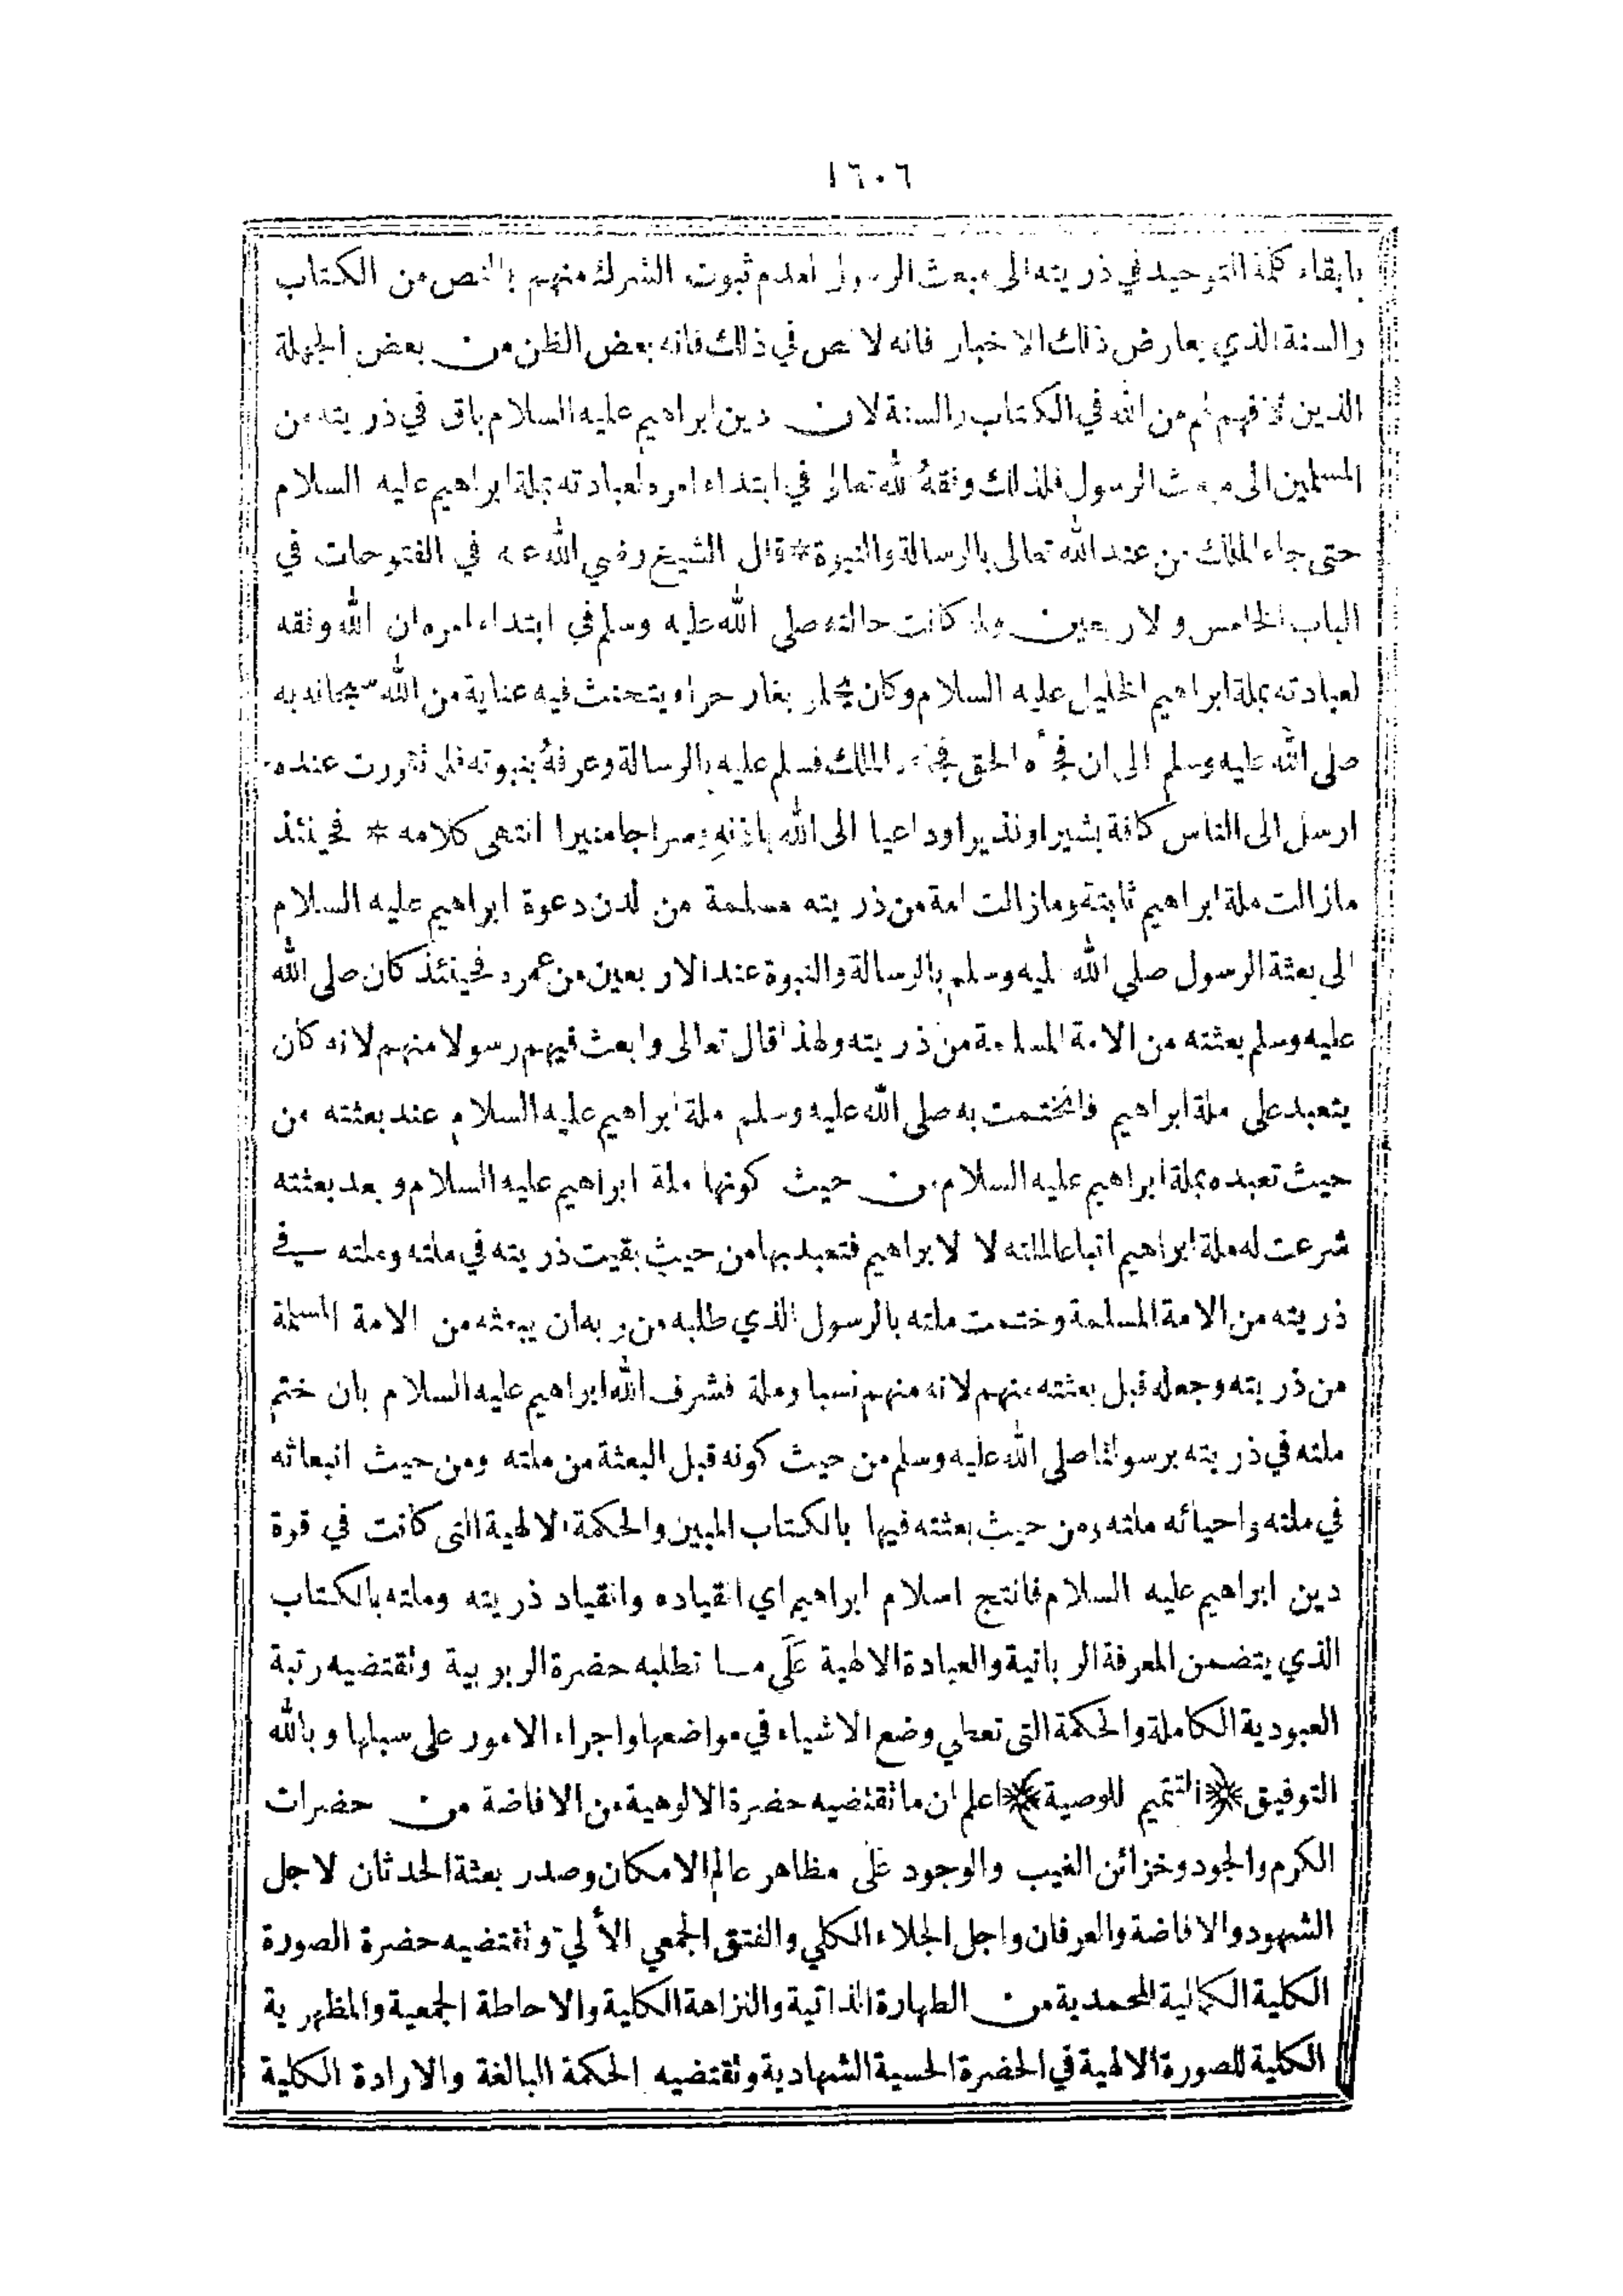 ١٦٠٦
بابقاء كلمة التوحيد في ذريته الى مبعث الرسول لعدم ثبوت الشرك منهم بالنص من الكتاب
والسنة الذي يعارض ذلك الاخبار فانه لا نص في ذلك فانه بعض الظن من بعض الجهلة
الذين لا فهم لهم من الله في الكتاب والسنة لان دين ابراهيم عليه السلام باق في ذريته من
المسلمين الى مبعث الرسول فلذلك وفقهُ الله تعالى في ابتداء امره لعبادته بملة ابراهيم عليه السلام
حتى جاء الملك من عند الله تعالى بالرسالة والنبوة * قال الشيخ رضي الله عنه في الفتوحات في
الباب الخامس والاربعين ولما كانت حالته صلى الله عليه وسلم في ابتداء امره ان الله وفقه
لعبادته بملة ابراهيم الخليل عليه السلام وكان يخلو بغار حراء يتحنث فيه عناية من الله سبحانه به
صلى الله عليه وسلم الى ان فجأه الحق فجاءه الملك فسلم عليه بالرسالة وعرفهُ بنبوته فلما تقررت عنده
ارسل الى الناس كافة بشيرا ونذيرا وداعيا الى الله باذنهِ وسراجا منيرا انتهى كلامه * فحينئذ
مازالت ملة ابراهيم ثابتة ومازالت امة من ذريته مسلمة من لدن دعوة ابراهيم عليه السلام
الى بعثة الرسول صلي الله عليه وسلم بالرسالة والنبوة عند الاربعين من عمره فحينئذ كان صلى الله
عليه وسلم بعثته من الامة المسلمة من ذريته ولهذا قال تعالى وابعث فيهم رسولا منهم لانه كان
يتعبد على ملة ابراهيم فانختمت به صلى الله عليه وسلم ملة ابراهيم عليه السلام عند بعثته من
حيث تعبده بملة ابراهيم عليه السلام من حيث كونها ملة ابراهيم عليه السلام وبعد بعثته
شرعت له ملة ابراهيم اتباعا لملته لا لابراهيم فتعبد بها من حيث بقيت ذريته في ملته وملته في
ذريته من الامة المسلمة وختمت ملته بالرسول الذي طلبه من ربه ان يبعثه من الامة المسلمة
من ذريته وجعله قبل بعثته منهم لانه منهم نسبا وملة فشرف الله ابراهيم عليه السلام بان ختم
ملته في ذريته برسولنا صلى الله عليه وسلم من حيث كونه قبل البعثة من ملته ومن حيث انبعاثه
في ملته واحيائه ملته ومن حيث بعثته فيها بالكتاب المبين والحكمة الالهية التى كانت في قرة
دين ابراهيم عليه السلام فانتج اسلام ابراهيم اي انقياده وانقياد ذريته وملته بالكتاب
الذي يتضمن المعرفة الربانية والعبادة الالهية عَلَى ما تطلبه حضرة الربوبية وتقتضيه رتبة
العبودية الكاملة والحكمة التى تعطي وضع الاشياء في مواضعها واجراء الامور على سبلها وبالله
التوفيق ﴿التتميم للوصية﴾ اعلم ان ما تقتضيه حضرة الالوهية من الافاضة من حضرات
الكرم والجود وخزائن الغيب والوجود عَلَى مظاهر عالم الامكان وصدر بعثة الحدثان لاجل
الشهود والافاضة والعرفان واجل الجلاء الكلي والفتق الجمعي وتقتضيه حضرة الصورة
الكلية الكمالية المحمدية من الطهارة الذاتية والنزاهة الكلية والاحاطة الجمعية والمظهرية
الكلية للصورة الالهية في الحضرة الحسية الشهادية وتقتضيه الحكمة البالغة والارادة الكلية